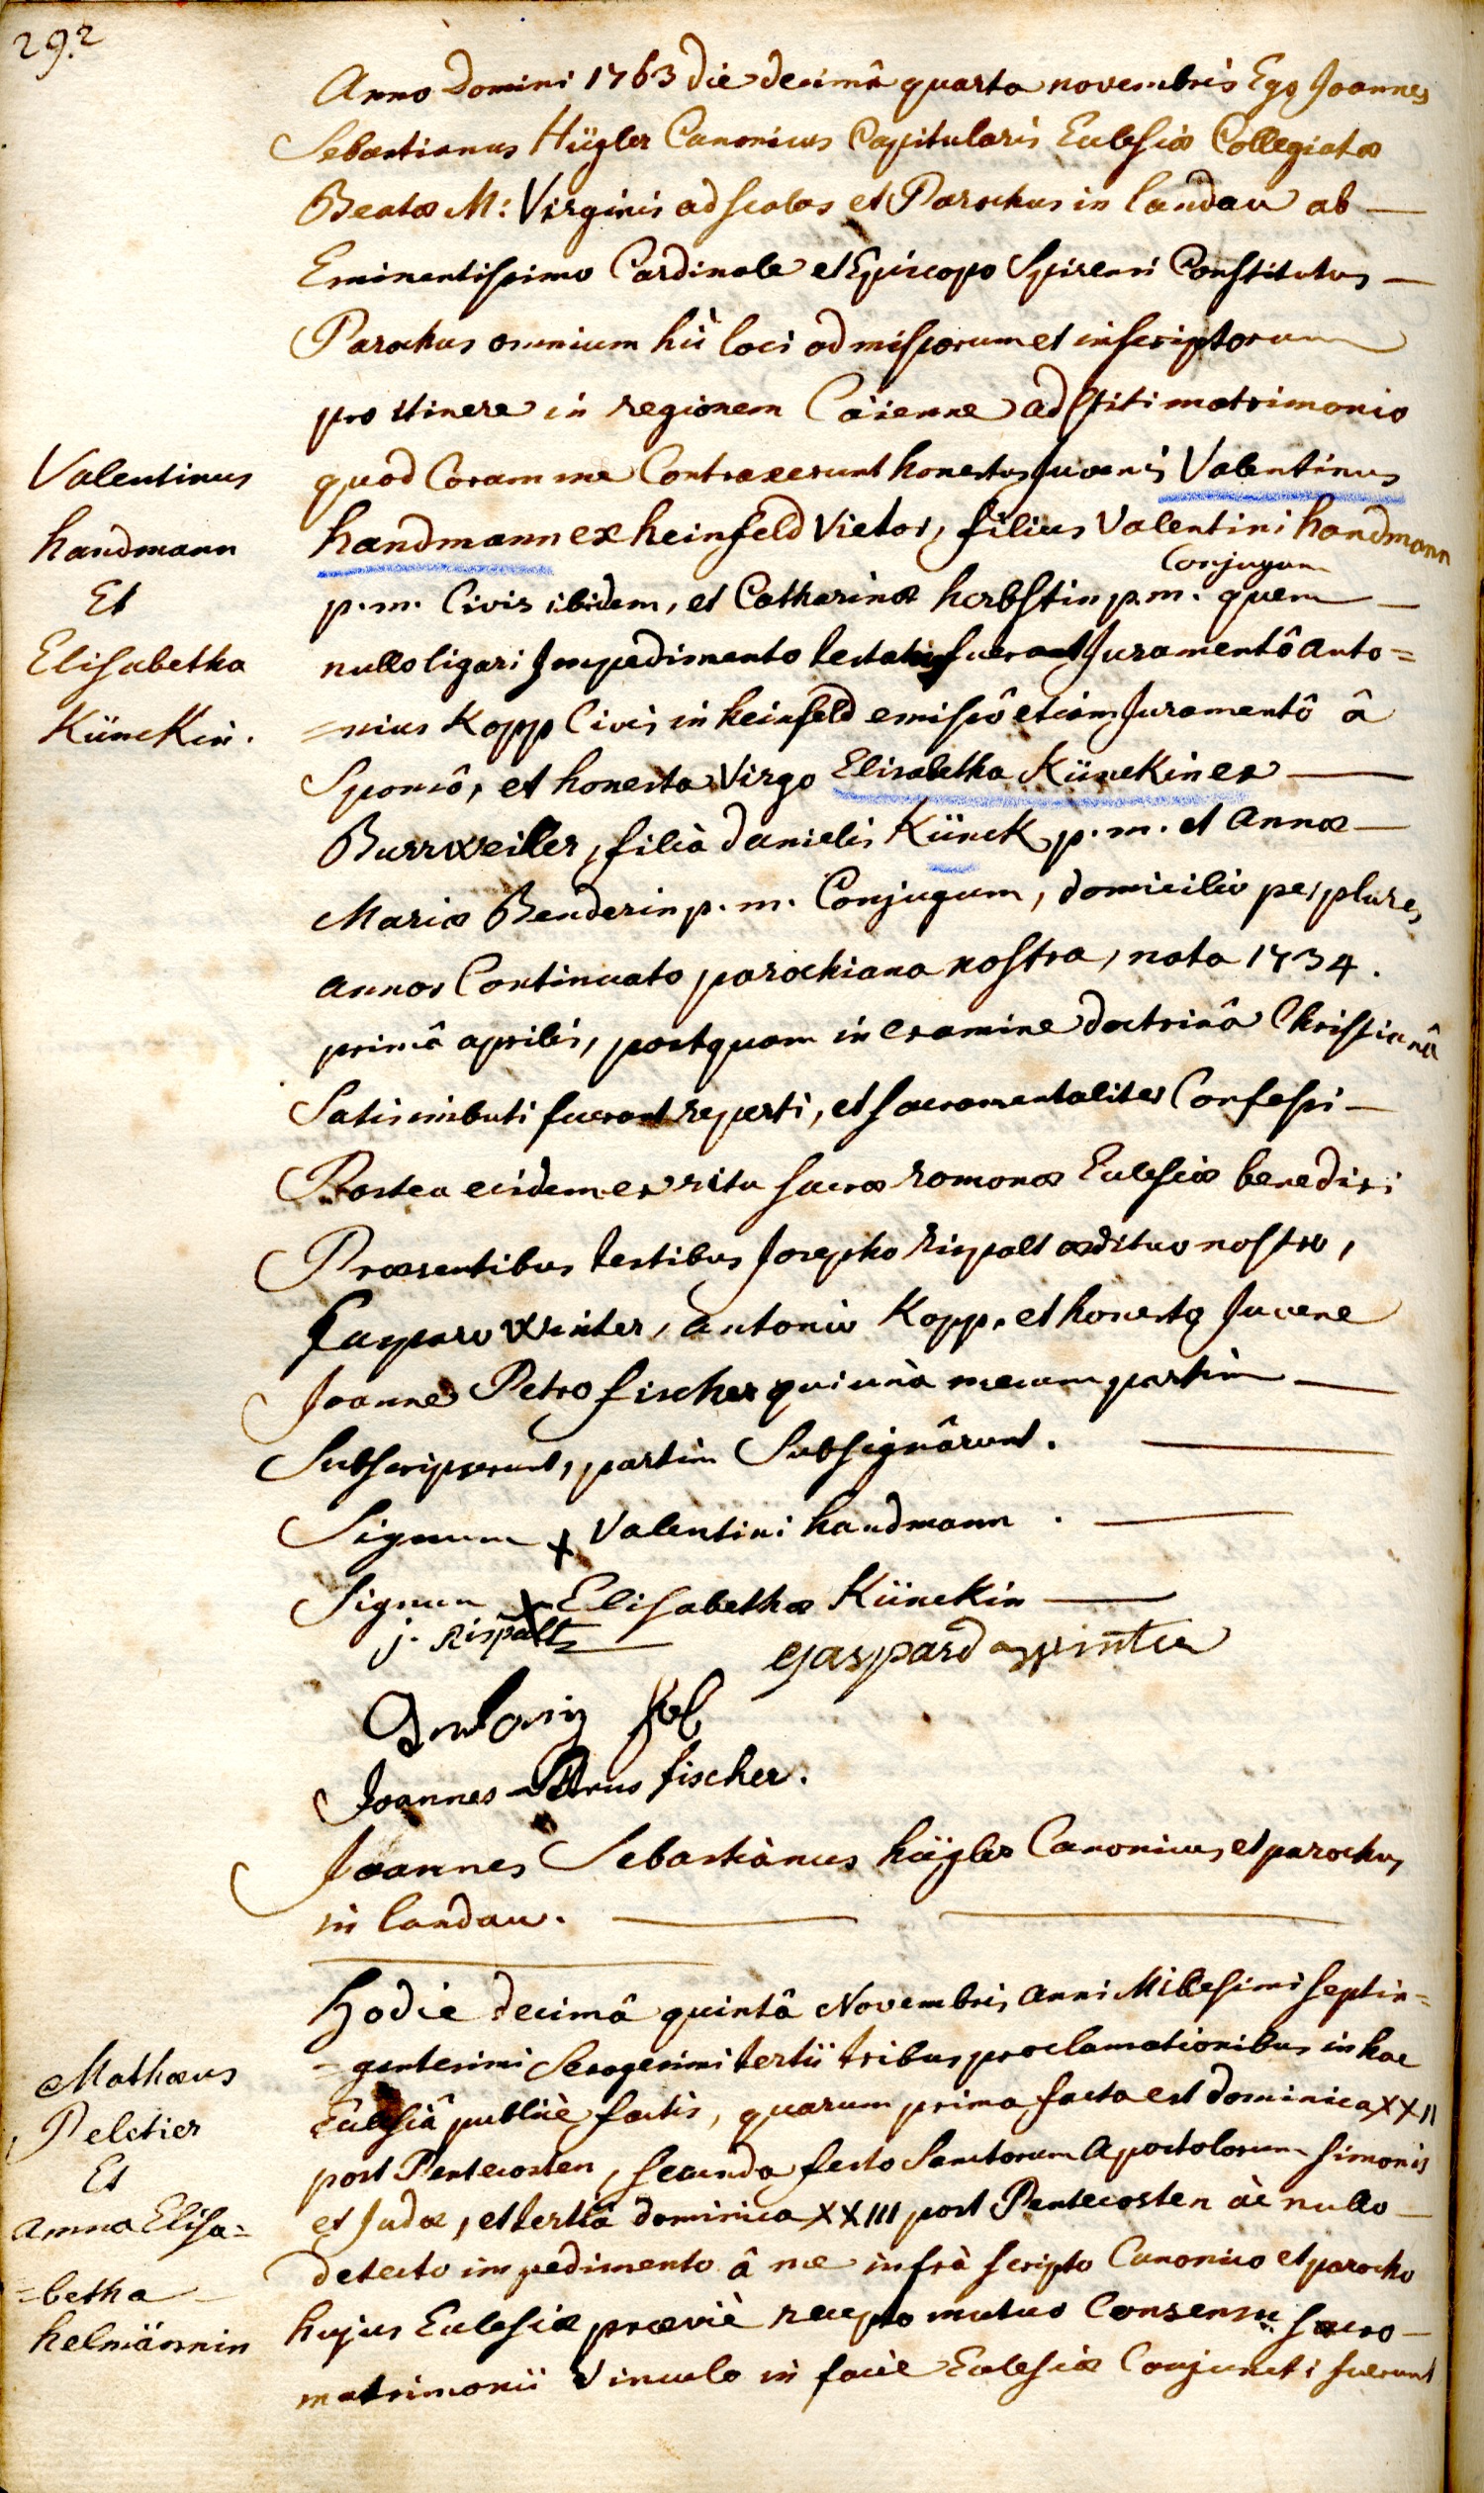 292
Anno Domini 1763 die decimâ quarta novembris Ego Joannes
Sebastianus Hügler Canonicus Capitularis Eccleſiæ Collegiatæ
Beatæ M: Virginis ad scalas et Parochus in Landau ab —
Eminentiſsimo Cardinale et Episcopo Spirensi Conſtitutus —
Parochus omnium hìc loci admiſsorum et inſcriptorum
pro itinere in regionem Caïenne adſtiti matrimonio
quod Coram me Contraxerunt honestus Juvenis Valentinus
handmann ex heinfeld Vietor, filius Valentini handmann
Conjugum
p. m. Civis ibidem, et Catharinæ herbſtin p. m. quem —
nullo ligari Impedimento testatus fuerat Juramentô Anto=
=nius Kopp Civis in heinfeld emiſsô etiam Juramentô â
Sponsô, et honesta Virgo Elisabetha Künckin ex —
Burrweiller, filia Danielis Künck p. m. et Annæ —
Mariæ Benderin p. m. Conjugum, domicilio per plures
annos Continuato parochiana noſtra, nata 1734.
primâ aprilis, postquam in examine doctrinâ Chriſtianâ
Satis imbuti fuerant reperti, et ſacramentaliter Confeſsi —
Postea eisdem ex ritu ſacræ romanæ Eccleſiæ benedixi
Præsentibus testibus Josepho Rispalt ædituo noſtro,
Casparo Winter, antonio Kopp, et honesto Juvene
Joanne Petro fischer qui unà mecum partim —
Subſcripserunt, partim Subſignârunt. —
Signum + Valentini handmann . —
Signum + Eliſabethæ Künckin —
j. Rispalt
gaspard winter
Joannes Petrus fischer.
Joannes Sebastiànus hügler Canonicus et parochus
in Landau. —
Hodie decimâ quintâ Novembris anni Milleſimi ſeptin=
=gentesimi Sexagesimi tertii tribus proclamationibus in hac
Eccleſiâ publicè factis, quarum prima facta est dominica XXII
post Pentecosten, ſecunda festo Sanctorum Apostolorum Simonis
et Judæ, et tertia dominica XXIII post Pentecosten ac nullo —
detecto impedimento â me infrà ſcripto Canonico et parocho
hujus Eccleſiæ præviè recepto mutuo Consensu ſacro —
matrimonii Vinculo in facie Eccleſiæ Conjuncti fuerunt
Valentinus
handmann
Et
Eliſabetha
Künckin.
Mathæus
Peletier
Et
Anna Eliſa=
=betha —
helmännin